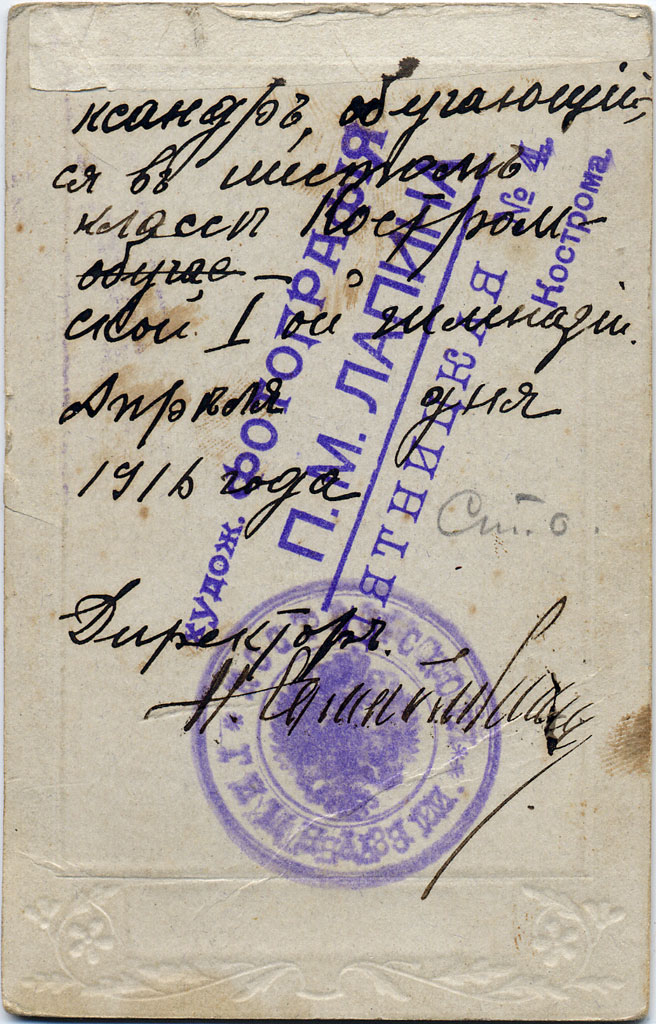 ксандръ, обучающій-
ся въ шестомъ
классѣ Костром-
обучае –
ской I ой гимназіи.
Апрѣля дня
1916 года
Ст. о.
Директоръ.
худож. ФОТОГРАФІЯ
П. М. ЛАПИНА
ПЯТНИЦКАЯ № 4.
Кострома.